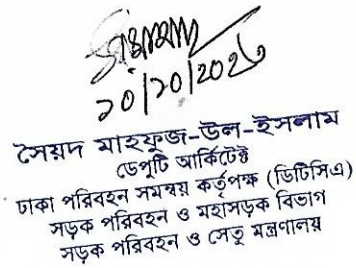 ২০/১০/২০২৩
সৈয়দ মাহফুজ-উল-ইসলাম
ডেপুটি আর্কিটেক্ট
ঢাকা পরিবহন সমন্বয় কর্তৃপক্ষ (ডিটিসিএ)
সড়ক পরিবহন ও মহাসড়ক বিভাগ
সড়ক পরিবহন ও সেতু মন্ত্রণালয়